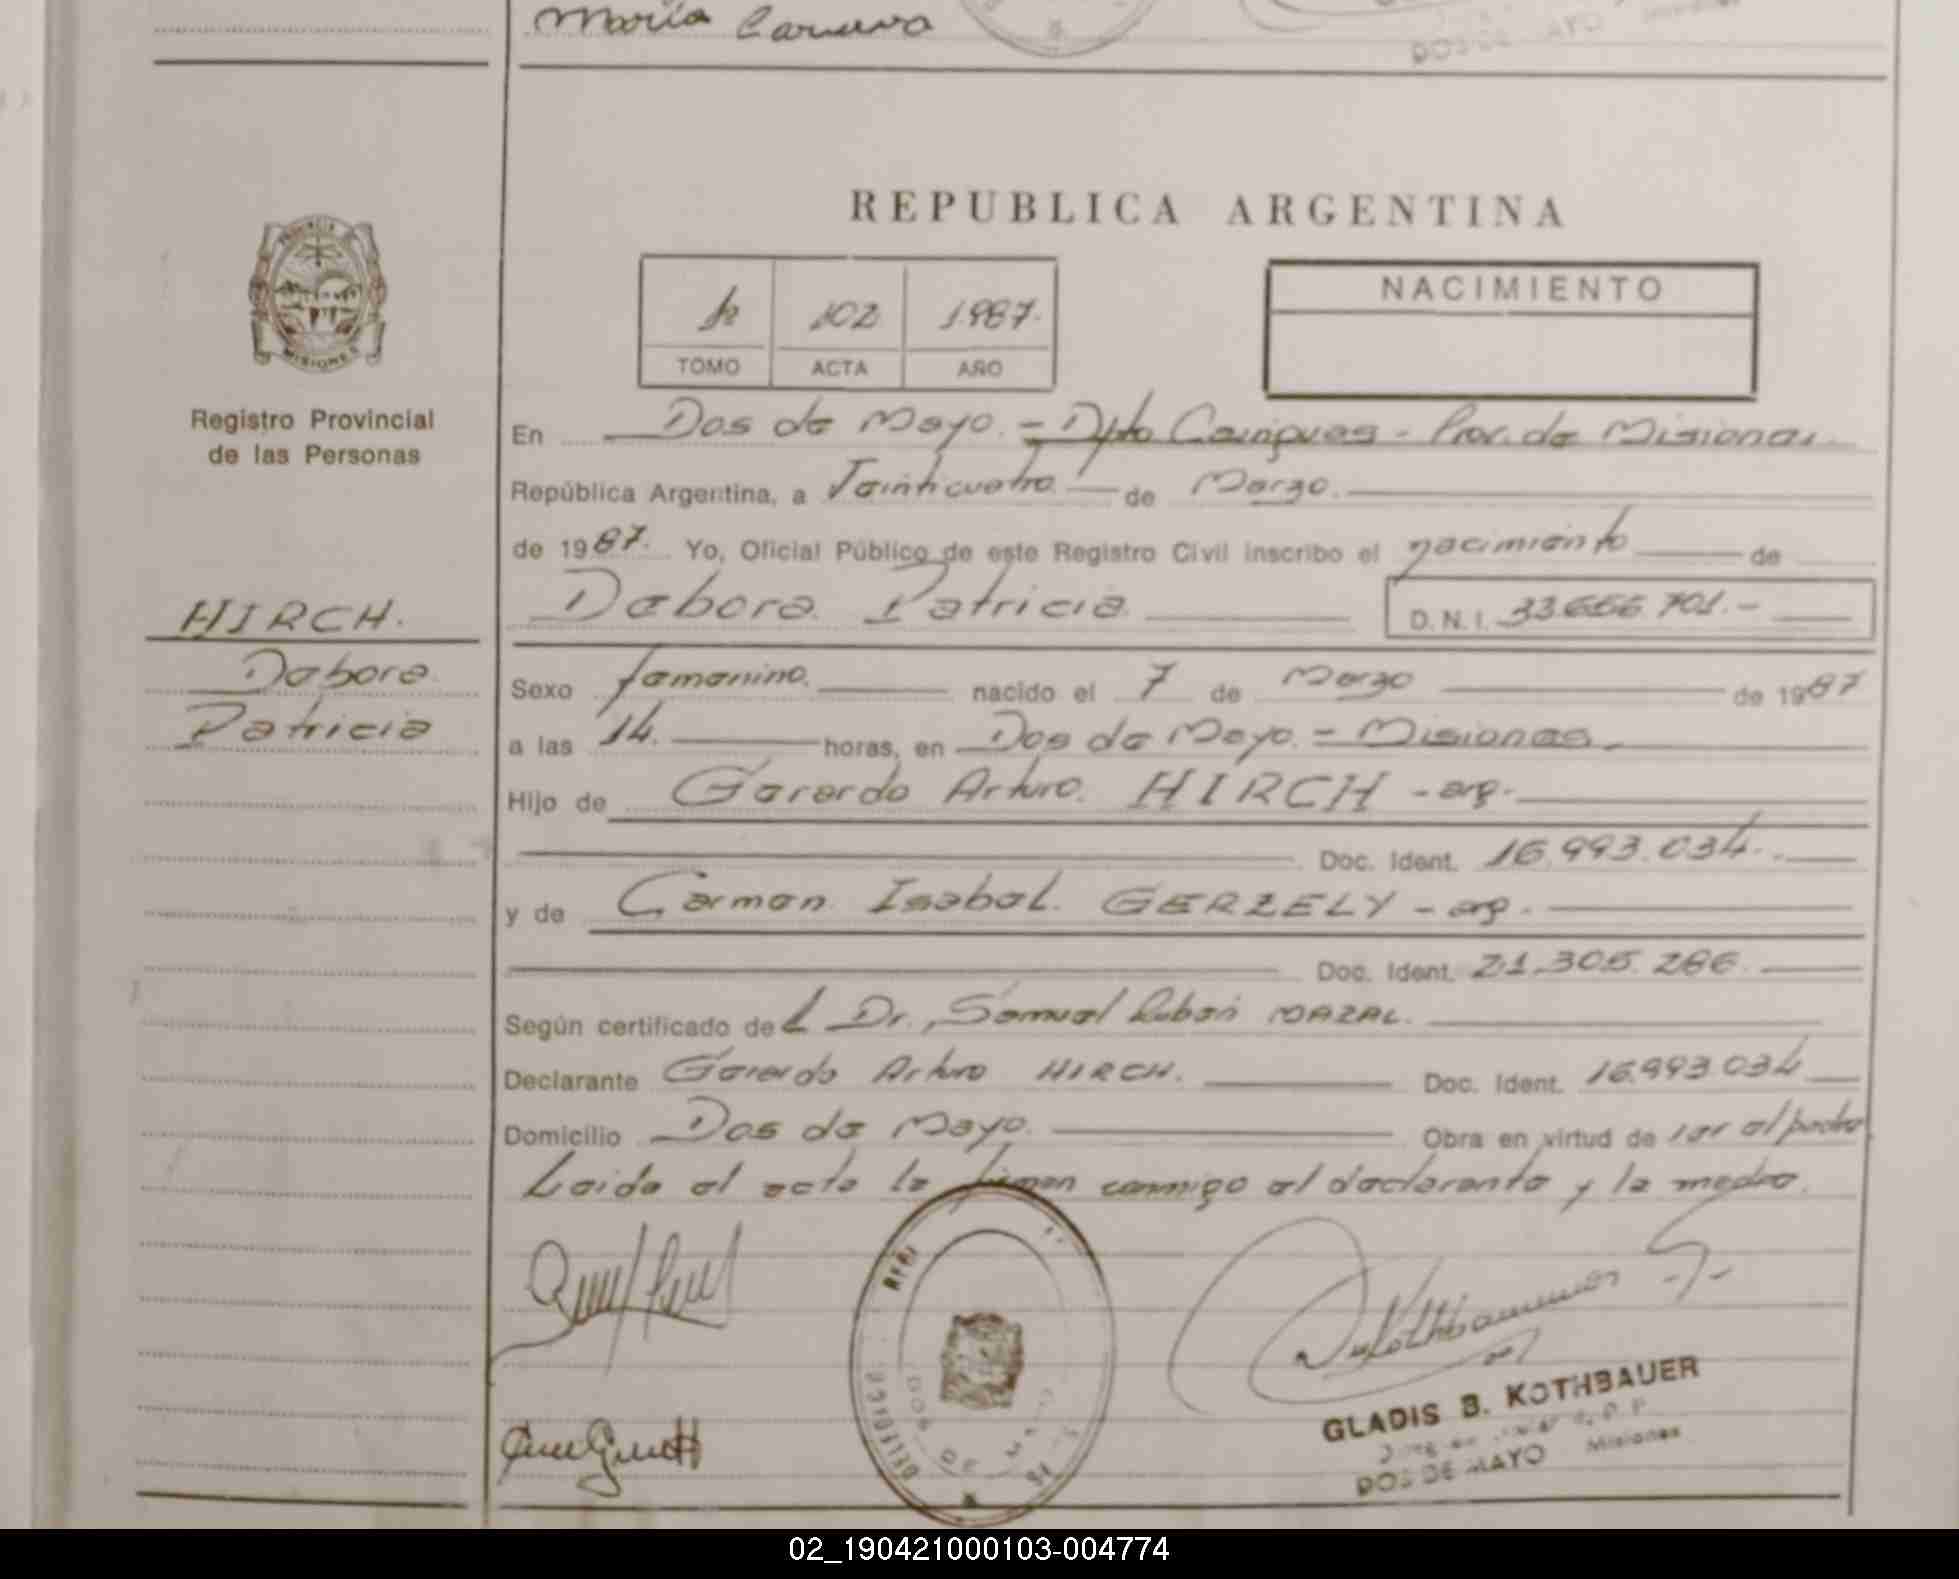 María
REPUBLICA ARGENTINA
NACIMIENTO
102 1.987.
TOMO ACTA AÑO
PROVINCIA DE
MISIONES
Registro Provincial
de las Personas
En Dos de Mayo. - Dpto Cainguas - Prov. de Misiones.
República Argentina, a Veinticuatro de Marzo.
de 1987. Yo, Oficial Público de este Registro Civil inscribo el nacimiento de
HIRCH.
Debora
Patricia
Debora Patricia D.N.I. 33.656.701.-
Sexo femenino. nacido el 7 de Marzo de 1987
a las 14. horas, en Dos de Mayo. - Misiones.
Hijo de Gerardo Arturo. HIRCH - arg.
Doc. Ident. 16.993.034.
y de Carmen Isabel. GERZELY - arg.
Doc. Ident. 21.305.286.
Según certificado del Dr. Samuel Rubén MAZAL.
Declarante Gerardo Arturo HIRCH. Doc. Ident. 16.993.034
Domicilio Dos de Mayo. Obra en virtud de ser el padre
Leida el acta la firman conmigo el declarante y la madre.
DOS DE MAYO
GLADIS B. KOTHBAUER
DOS DE MAYO Misiones
02_190421000103-004774